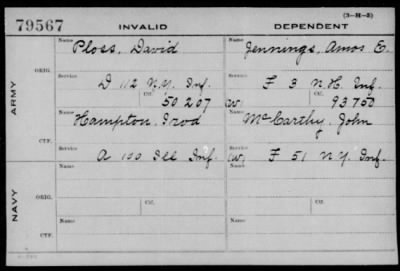 (3-H-3)
79567 INVALID DEPENDENT
Name Ploss, David Name Jennings, Amos E.
ARMY
ORIG. Service D 112 N.Y. Inf. Service F 3 N.H. Inf.
Ctf. 50207 (W) Ctf. 93750
Name Hampton, Name McCarthy, John
CTF. Service A 100 Ill Inf. Service (W) F 51 N.Y. Inf.
NAVY
Name Name
ORIG. Service Ctf. Service Ctf.
Name Name
CTF. Service Service